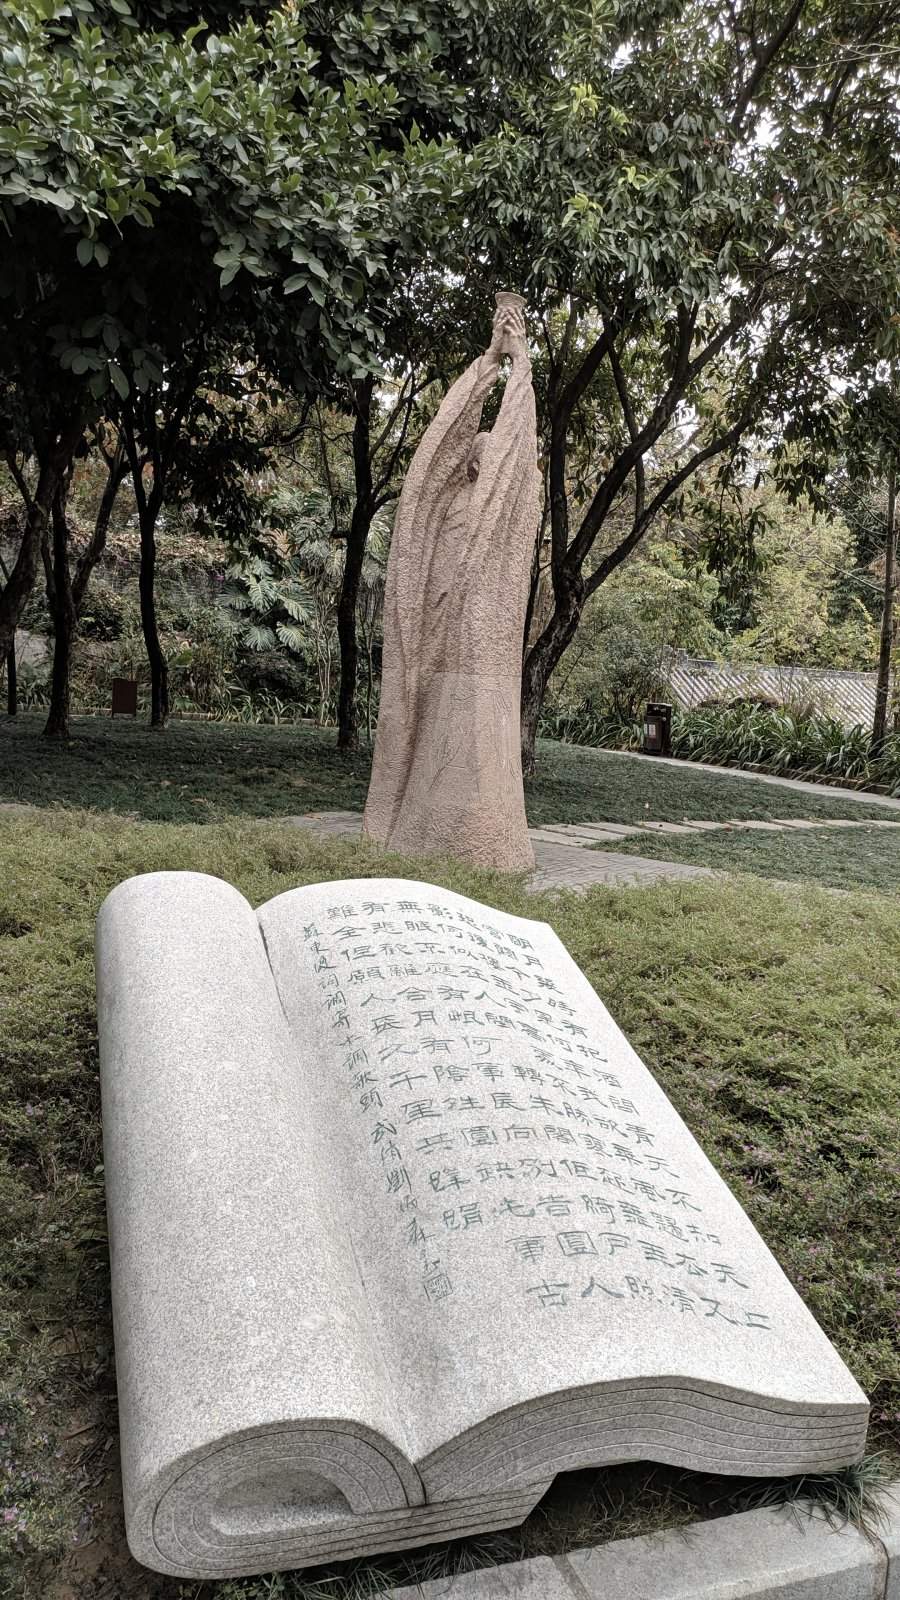 明月幾時有把酒問青天不知天上
宮闕今夕是何年我欲乘風歸去又
恐瓊樓玉宇高處不勝寒起舞弄清
影何似在人間 轉朱閣低綺戶照
無眠不應有恨何事長向別時圓人
有悲歡離合月有陰晴圓缺此事古
難全但願人長久千里共嬋娟
蘇東坡詞調寄水調歌頭 劉炳森